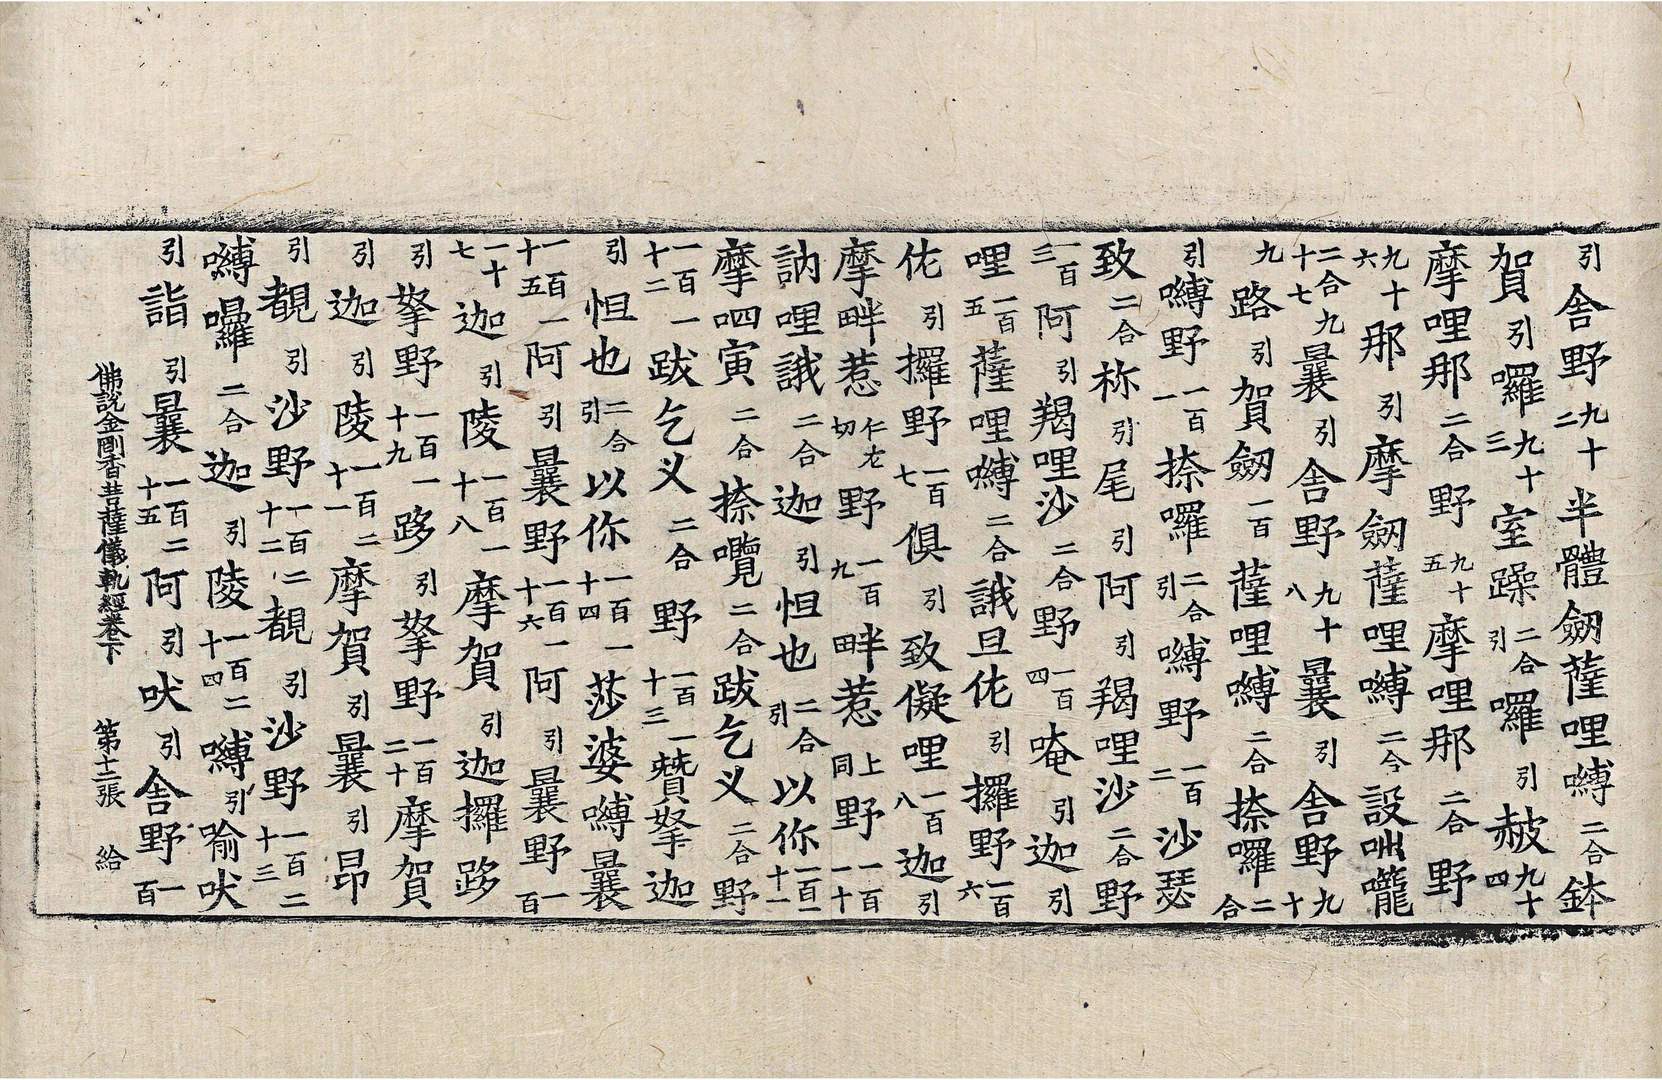 引舍野九十二半體劒薩哩嚩二合鉢
賀引囉九十三室躁二合引囉引赧九十四
摩哩那二合野九十五摩哩那二合野
九十六那引摩劒薩哩嚩二合設咄嚨
二合九十七曩引舍野九十八曩引舍野九十
九路引賀劒一百薩哩嚩二合捺囉二合
引嚩野一百一捺囉二合引嚩野一百二沙瑟
致二合祢引尾引阿引羯哩沙二合野
一百三阿引羯哩沙二合野一百四唵引迦引
哩一百五薩哩嚩二合誐旦佗引攞野一百六
佗引攞野一百七俱引致儗哩一百八迦引
摩畔惹仁左切野一百九畔惹上同野一百一十
訥哩誐二合迦引怛也二合引以你一百一十一
摩呬寅二合捺囕二合跋乞义二合野
一百一十二跋乞义二合野一百一十三贊拏迦
引怛也二合引以你一百一十四莎婆嚩曩
一百一十五阿引曩野一百一十六阿引曩野一百
一十七迦引陵一百一十八摩賀引迦攞跢
引拏野一百一十九跢引拏野一百二十摩賀
引迦引陵一百二十一摩賀引曩引昂
引覩引沙野一百二十二覩引沙野一百二十三
嚩囉二合迦引陵一百二十四嚩引喻吠
引詣引曩一百二十五阿引吠引舍野一百
佛說金剛香菩薩儀軌經卷下 第十二張 給